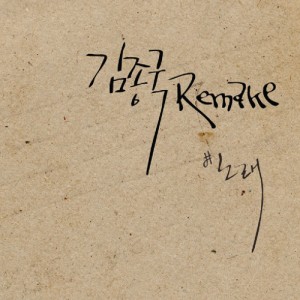 김종국 Remake
노래